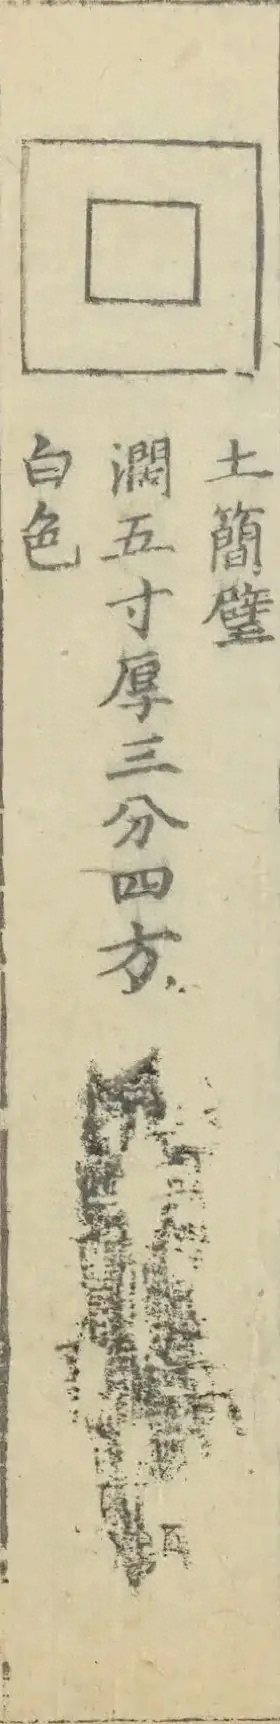 土簡璧
濶五寸厚三分四方
白色